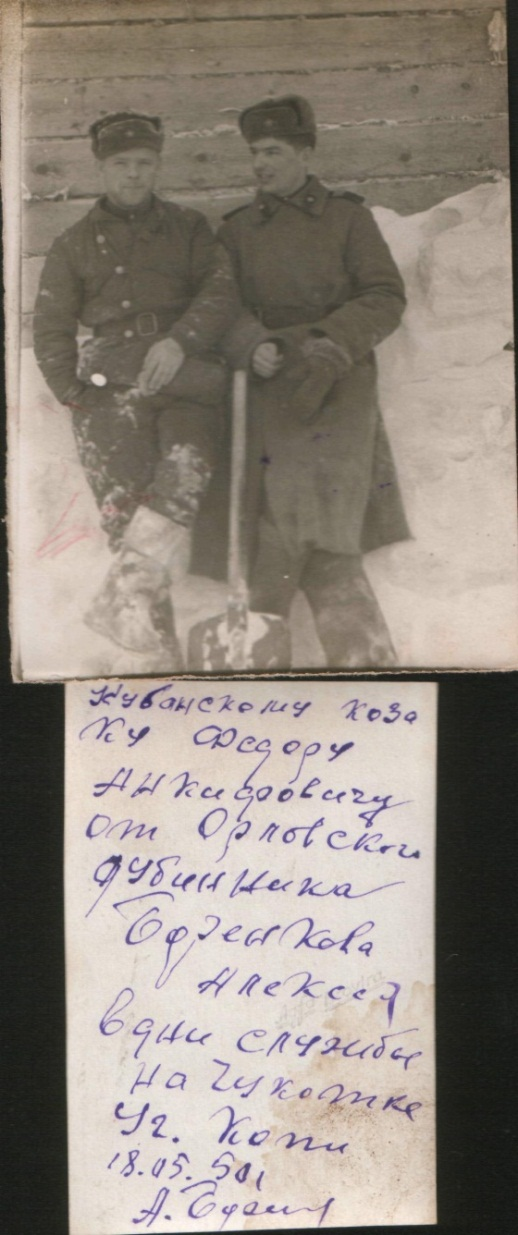 Кубанскому коза
ку Федору
Анкидовичу
от Орловского
дубинника
Алексея
в дни службы
на Чукотке
Уг. Копи
18.05.50г
А.